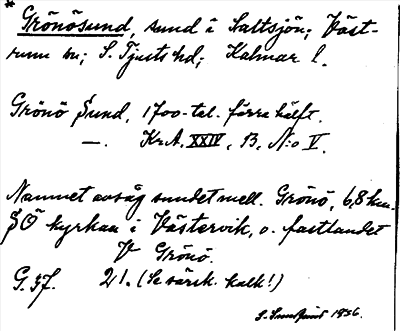 * Grönösund, sund i Saltsjön; Väst-
rum sn; S. Tjusts hd; Kalmar l.
Grönö Sund, 1700-tal. förra hälft.
—. Kr.A. XXIV, B, N:o V.
Namnet avsåg sundet mell. Grönö, 6,8 km.
SÖ kyrkan i Västervik, o. fastlandet
V Grönö.
G. 37. 21. (Se särsk. kalk!)
1936.